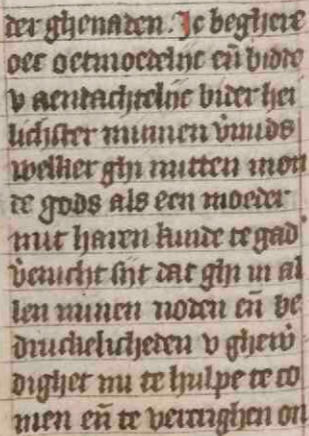 der ghenaden. Ic beghere
oec oetmoedelijc eñ bidde
v aendachtelijc bider hei
lichster minnen v̉mids
welker ghi mitten mon
de gods als een moeder
mit haren kinde te gad̉
v̉enicht sijt dat ghi in al
len minen noden eñ be
druckelicheden v ghew̉
dighet mi te hulpe te co
men eñ te vercrighen on